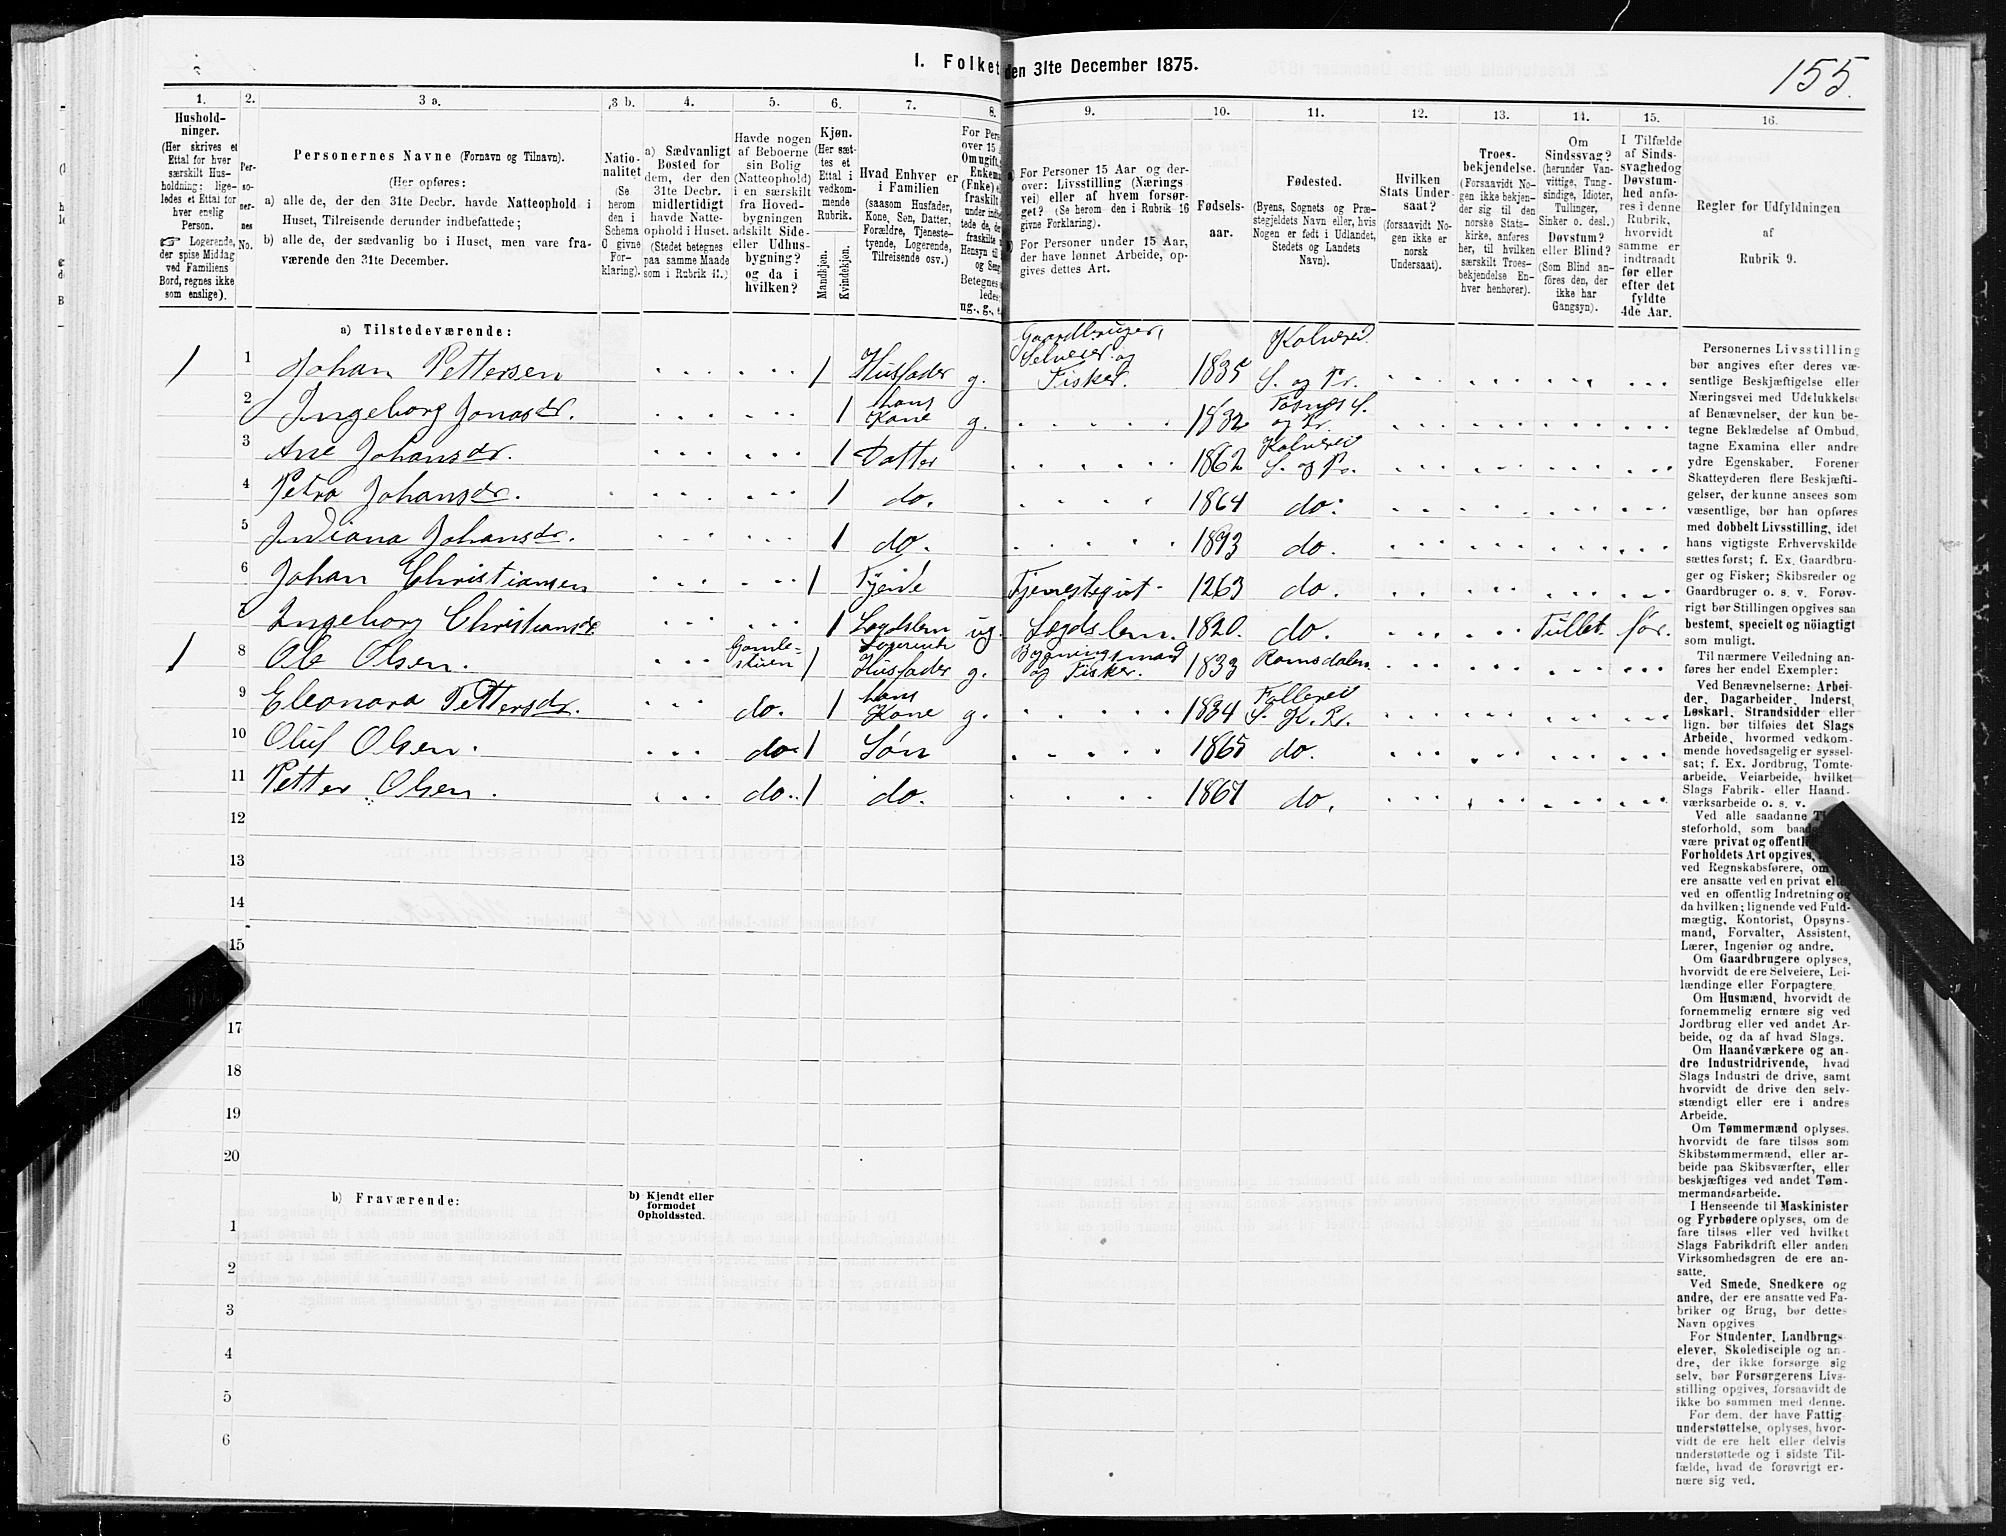 155.
I. Folket den 31te December 1875.
1. 2. 3 a. 3 b. 4. 5. 6. 7. 8. 9. 10. 11. 12. 13. 14. 15. 16.
Hushold-
ninger.
(Her skrives et
Ettal for hver
særskilt Hus-
holdning; lige-
ledes et Ettal for
hver enslig
Person.
☞ Logerende,
der spise Middag
ved Familiens
Bord, regnes ikke
som enslige).
Per-
so-
ner-
nes
No.
Personernes Navne (Fornavn og Tilnavn).
(Her opføres:
a) alle de, der den 31te Decbr. havde Natteophold i
Huset, Tilreisende derunder indbefattede;
b) alle de, der sædvanlig bo i Huset, men vare fra-
værende den 31te December.
Natio-
nalitet
(Se
herom
den i
Schema
O givne
For-
klaring).
a) Sædvanligt
Bosted for
dem, der den
31te Decbr.
midlertidigt
havde Natte-
ophold i Huset.
(Stedet betegnes
paa samme Maade
som i Rubrik 11.)
Havde nogen
af Beboerne
sin Bolig
(Natteophold)
i en særskilt
fra Hoved-
bygningen
adskilt Side-
eller Udhus-
bygning?
og da i
hvilken?
Kjøn.
(Her sæt-
tes et
Ettal i
vedkom-
mende
Rubrik.
Mandkjøn.
Kvindekjøn.
Hvad Enhver er
i Familien
(saasom Husfader,
Kone, Søn, Datter,
Forældre, Tjeneste-
tyende, Logerende,
Tilreisende osv.)
For Pers
over 15 A
Omugift,
Enkema
(Fnke) e
fraskilt
under indb
tede de, de
fraskilte
Hensyn til
og Seng
Betegnes s
ledes:
ug., g., e
a) For Personer 15 Aar og der-
over: Livsstilling (Nærings-
vei) eller af hvem forsør-
get? (Se herom den i Rubrik 16
givne Forklaring).
b) For Personer under 15 Aar,
der have lønnet Arbeide, op-
gives dettes Art.
Fødsels-
aar.
Fødested.
(Byens, Sognets og Præ-
stegjeldets Navn eller, hvis
Nogen er født i Udlandet,
Stedets og Landets
Navn).
Hvilken
Stats Under-
saat?
(forsaavidt No-
gen ikke er
norsk
Undersaat).
Troes-
bekjendelse.
(Forsaavidt No-
gen ikke bekjen-
der sig til den
norske Stats-
kirke, anføres
her, til hvilken
særskilt Troes-
bekjendelse En-
hver henhører).
Om
Sindssvag?
(herunder Van-
vittige, Tung-
sindige, Idioter,
Tullinger,
Sinker o. desl.)
Døvstum?
eller Blind?
(Som Blind an-
føres den, der
ikke har
Gangsyn).
I Tilfælde
af Sinds-
svaghed og
Døvstum-
hed anfø-
res i denne
Rubrik,
hvorvidt
samme er
indtraadt
før eller
efter det
fyldte
4de Aar.
Regler for Udfyldningen
af
Rubrik 9.
a) Tilstedeværende:
1 1 Johan Pettersen 1 Husfader g. Gaardbruger, Selveier og Fisker. 1835 Kolvereid S. og Pr.
2 Ingeborg Jonasdr. 1 hans Kone g. 1832 Fosnes S. og Pr.
3 Ane Johansdr. 1 Datter 1862 Kolvereid S. og Pr.
4 Petra Johansdr. 1 do. 1864 do.
5 Indiana Johansdr. 1 do. 1873 do.
6 Johan Christiansen 1 Tjende Tjenestegut 1263 do.
7 Ingeborg Christiansdr. 1 Lægdslem ug. Lægdslem. 1820. do. Tullet. før.
1 8 Ole Olsen. Gamle-stuen 1 Logerende Husfader g. Bygningsmand og Fisker. 1833 Romsdalen
9 Eleonora Pettersdr. do. 1 hans Kone g. 1834 Follereid S. K. Pr.
10 Oluf Olsen. do. 1 Søn 1865 do.
11 Petter Olsen. do. 1 do. 1867 do.
12
13
14
15
17
18
19
20
b) Fraværende:
b) Kjendt eller
formodet
Opholdssted.
1
2
3
4
5
6
Personernes Livsstilling
bør angives efter deres væ-
sentlige Beskjæftigelse eller
Næringsvei med Udelukkelse
af Benævnelser, der kun be-
tegne Beklædelse af Ombud,
tagne Examina eller andre
ydre Egenskaber. Forener
Skatteyderen flere Beskjæfti-
gelser, der kunne ansees som
væsentlige, bør han opføres
med dobbelt Livsstilling, idet
hans vigtigste Erhvervskilde
sættes først; f. Ex. Gaardbru-
ger og Fisker; Skibsreder og
Gaardbruger o. s. v. Forøv-
rigt bør Stillingen opgives saa
bestemt, specielt og nöiagtigt
som muligt.
Til nærmere Veiledning an-
føres her endel Exempler:
Ved Benævnelserne: Arbei-
der, Dagarbeider, Inderst,
Løskarl, Strandsidder eller
lign. bør tilføies det Slags
Arbeide, hvormed vedkom-
mende hovedsagelig er syssel-
sat; f. Ex. Jordbrug, Tomte-
arbeide, Veiarbeide, hvilket
Slags Fabrik- eller Haand-
værksarbeide o. s. v.
Ved alle saadanne
steforhold, som baade
være privat og offentlig
Forholdets Art opgives,
ved Regnskabsførere, om
ere ansatte ved en privat eller
ved en offentlig Indretning og
da hvilken; lignende ved Fuld-
mægtig, Kontorist, Opsyns-
mand, Forvalter, Assistent,
Lærer, Ingeniør og andre.
Om Gaardbrugere oplyses,
hvorvidt de ere Selveiere, Lei-
lændinge eller Forpagtere.
Om Husmænd, hvorvidt de
fornemmelig ernære sig ved
Jordbrug eller ved andet Ar-
beide, og da af hvad Slags.
Om Haandværkere og an-
dre Industridrivende, hvad
Slags Industri de drive, samt
hvorvidt de drive den selv-
stændigt eller ere i andres
Arbeide.
Om Tømmermænd oplyses,
hvorvidt de fare tilsøs som
Skibstømmermænd, eller ar-
beide paa Skibsværfter, eller
beskjæftiges ved andet Tøm-
mermandsarbeide.
I Henseende til Maskinister
og Fyrbødere oplyses, om de
fare tilsøs eller ved hvilket
Slags Fabrikdrift eller anden
Virksomhedsgren de ere an-
satte.
Ved Smede, Snedkere og
andre, der ere ansatte ved Fa-
briker og Brug, bør dettes
Navn opgives
For Studenter, Landbrugs-
elever, Skoledisciple og an-
dre, der ikke forsørge sig
selv, bør Forsørgerens Livs-
stilling opgives, forsaavidt de
ikke bo sammen med denne.
For dem, der have Fattig-
understøttelse, oplyses, hvor-
vidt de ere helt eller delvis
understøttede og i sidste Til-
fælde, hvad de forøvrigt er-
nære sig ved.